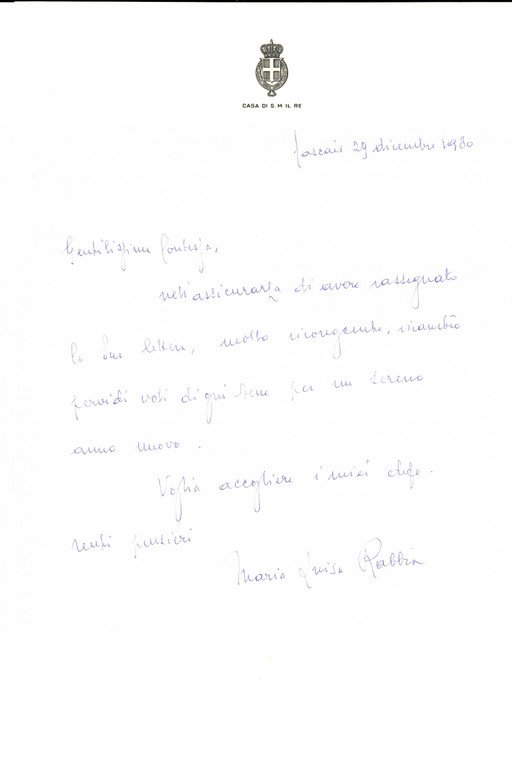 CASA DI S. M. IL RE
Cascais 29 dicembre 1980
Gentilissima Contessa,
nell'assicurarLa di avere rassegnato
le Sue lettere, molto riconoscente, ricambio
fervidi voti di ogni bene per un sereno
anno nuovo.
Voglia accogliere i miei defe-
renti pensieri
Maria Luisa Rabbia